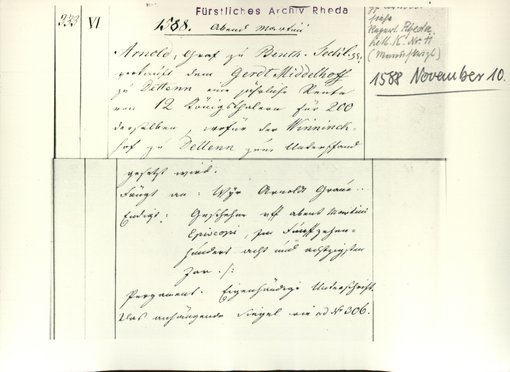 Fürstliches Archiv Rheda
333 VI 1588. Abend Martini
Arnold, Graf zu Benth. Tecklbg.
verkauft dem Gerdt Middelhoff
zu Oettenn eine jährliche Rente
von 12 Königsthalern für 200
derselben, wofür der Winninck-
hof zu Oettenn zum Unterpfand
gesetzt wird.
Fängt an: Wyr Arnoldt Graue..
Endigt: Geschehen uff abent Martini
Episcopi, Im Fünffzehen-
hundert acht und achtzigsten
Jar ./.
Pergament. Eigenhändige Unterschrift.
Das anhängende Siegel wie ad Nr. 306.
Rheda
(Manuskript)
1588 November 10.